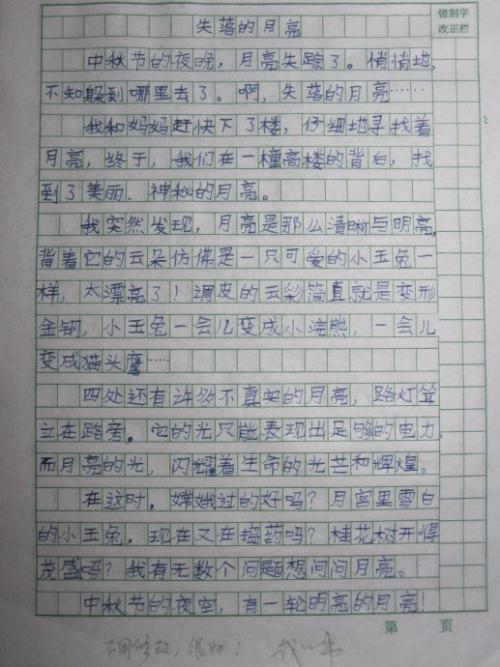 错别字
改正栏
失落的月亮
中秋节的夜晚，月亮失踪了。悄悄地，
不知躲到哪里去了。啊，失落的月亮……
我和妈妈赶快下了楼，仔细地寻找着
月亮，终于，我们在一幢高楼的背白，找
到了美丽、神秘的月亮。
我突然发现，月亮是那么清晰与明亮，
背着它的云朵仿佛是一只可爱的小玉兔一
样，太漂亮了！调皮的云彩简直就是变形
金钢，小玉兔一会儿变成小浣熊，一会儿
变成猫头鹰……
四处还有许多不真实的月亮，路灯耸
立在路旁。它的光只能表现出足够的电力，
而月亮的光，闪耀着生命的光芒和辉煌。
在这时，嫦娥过的好吗？月宫里雪白
的小玉兔，现在又在捣药吗？桂花树开得
茂盛吗？我有无数个问题想问问月亮。
中秋节的夜空，有一轮明亮的月亮！
第 页
不用修改，很好！